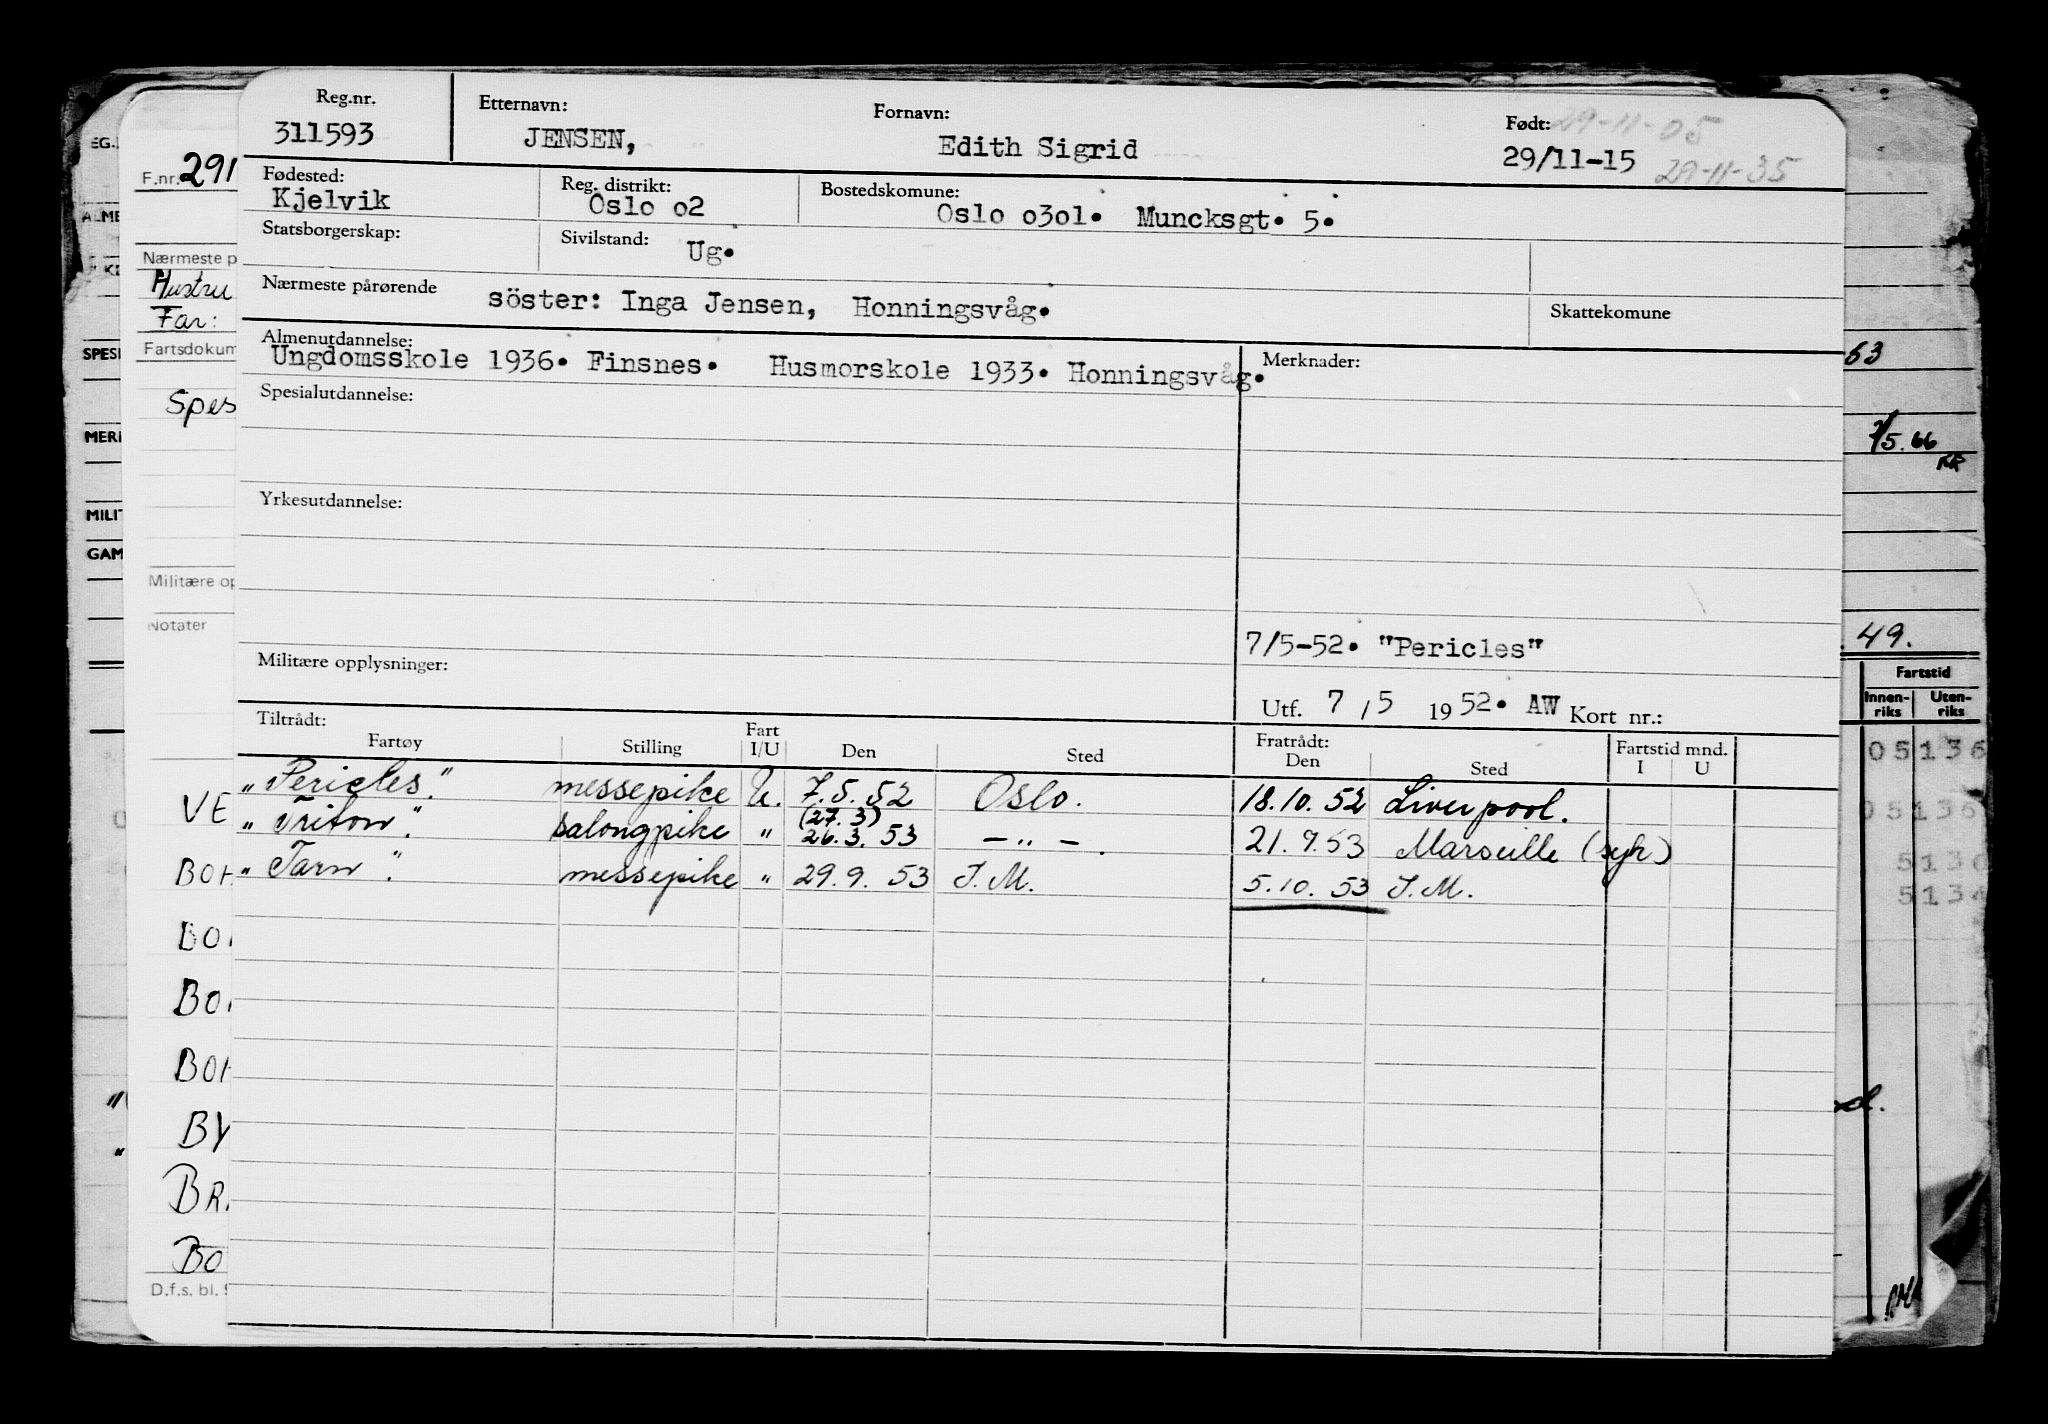 Reg.nr. Etternavn: Fornavn: Født: 29-11-05
311593 JENSEN, Edith Sigrid 29/11-15 29-11-35
Fødested: Reg. distrikt: Bostedskomune:
Kjelvik Oslo o2 Oslo o3o1. Muncksgt. 5.
Statsborgerskap: Sivilstand: Ug.
Nærmeste pårørende söster: Inga Jensen, Honningsvåg. Skattekomune
Almenutdannelse: Merknader:
Ungdomsskole 1936. Finsnes. Husmorskole 1933. Honningsvåg.
Spesialutdannelse:
Yrkesutdannelse:
7/5-52. "Pericles"
Militære opplysninger:
Utf. 7 / 5 19 52. AW Kort nr.:
Tiltrådt: Fratrådt: Fartstid mnd.
Fartøy Stilling Fart I/U Den Sted Den Sted I U
"Pericles." messepike U. 7.5.52 Oslo. 18.10.52 Liverpool.
(27.3)
"Triton". salongpike " 26.3.53 -"-. 21.9.53 Marseille (syk)
"Tarn". messepike " 29.9.53 I.M. 5.10.53 I.M.
F.nr. 291
Nærmeste p
Hustru
Far:
Fartsdokum
Spes
Militære op
Notater
VE
BOH
BO
BO
BOH
BY
BR
BO
D.f.s. bl.
EG.
ALME
SPESI
MERI
MILIT
GAM
53
7/5.66
RR
49.
Fartstid
Innen-riks Uten-riks
05136
05136
5136
5134